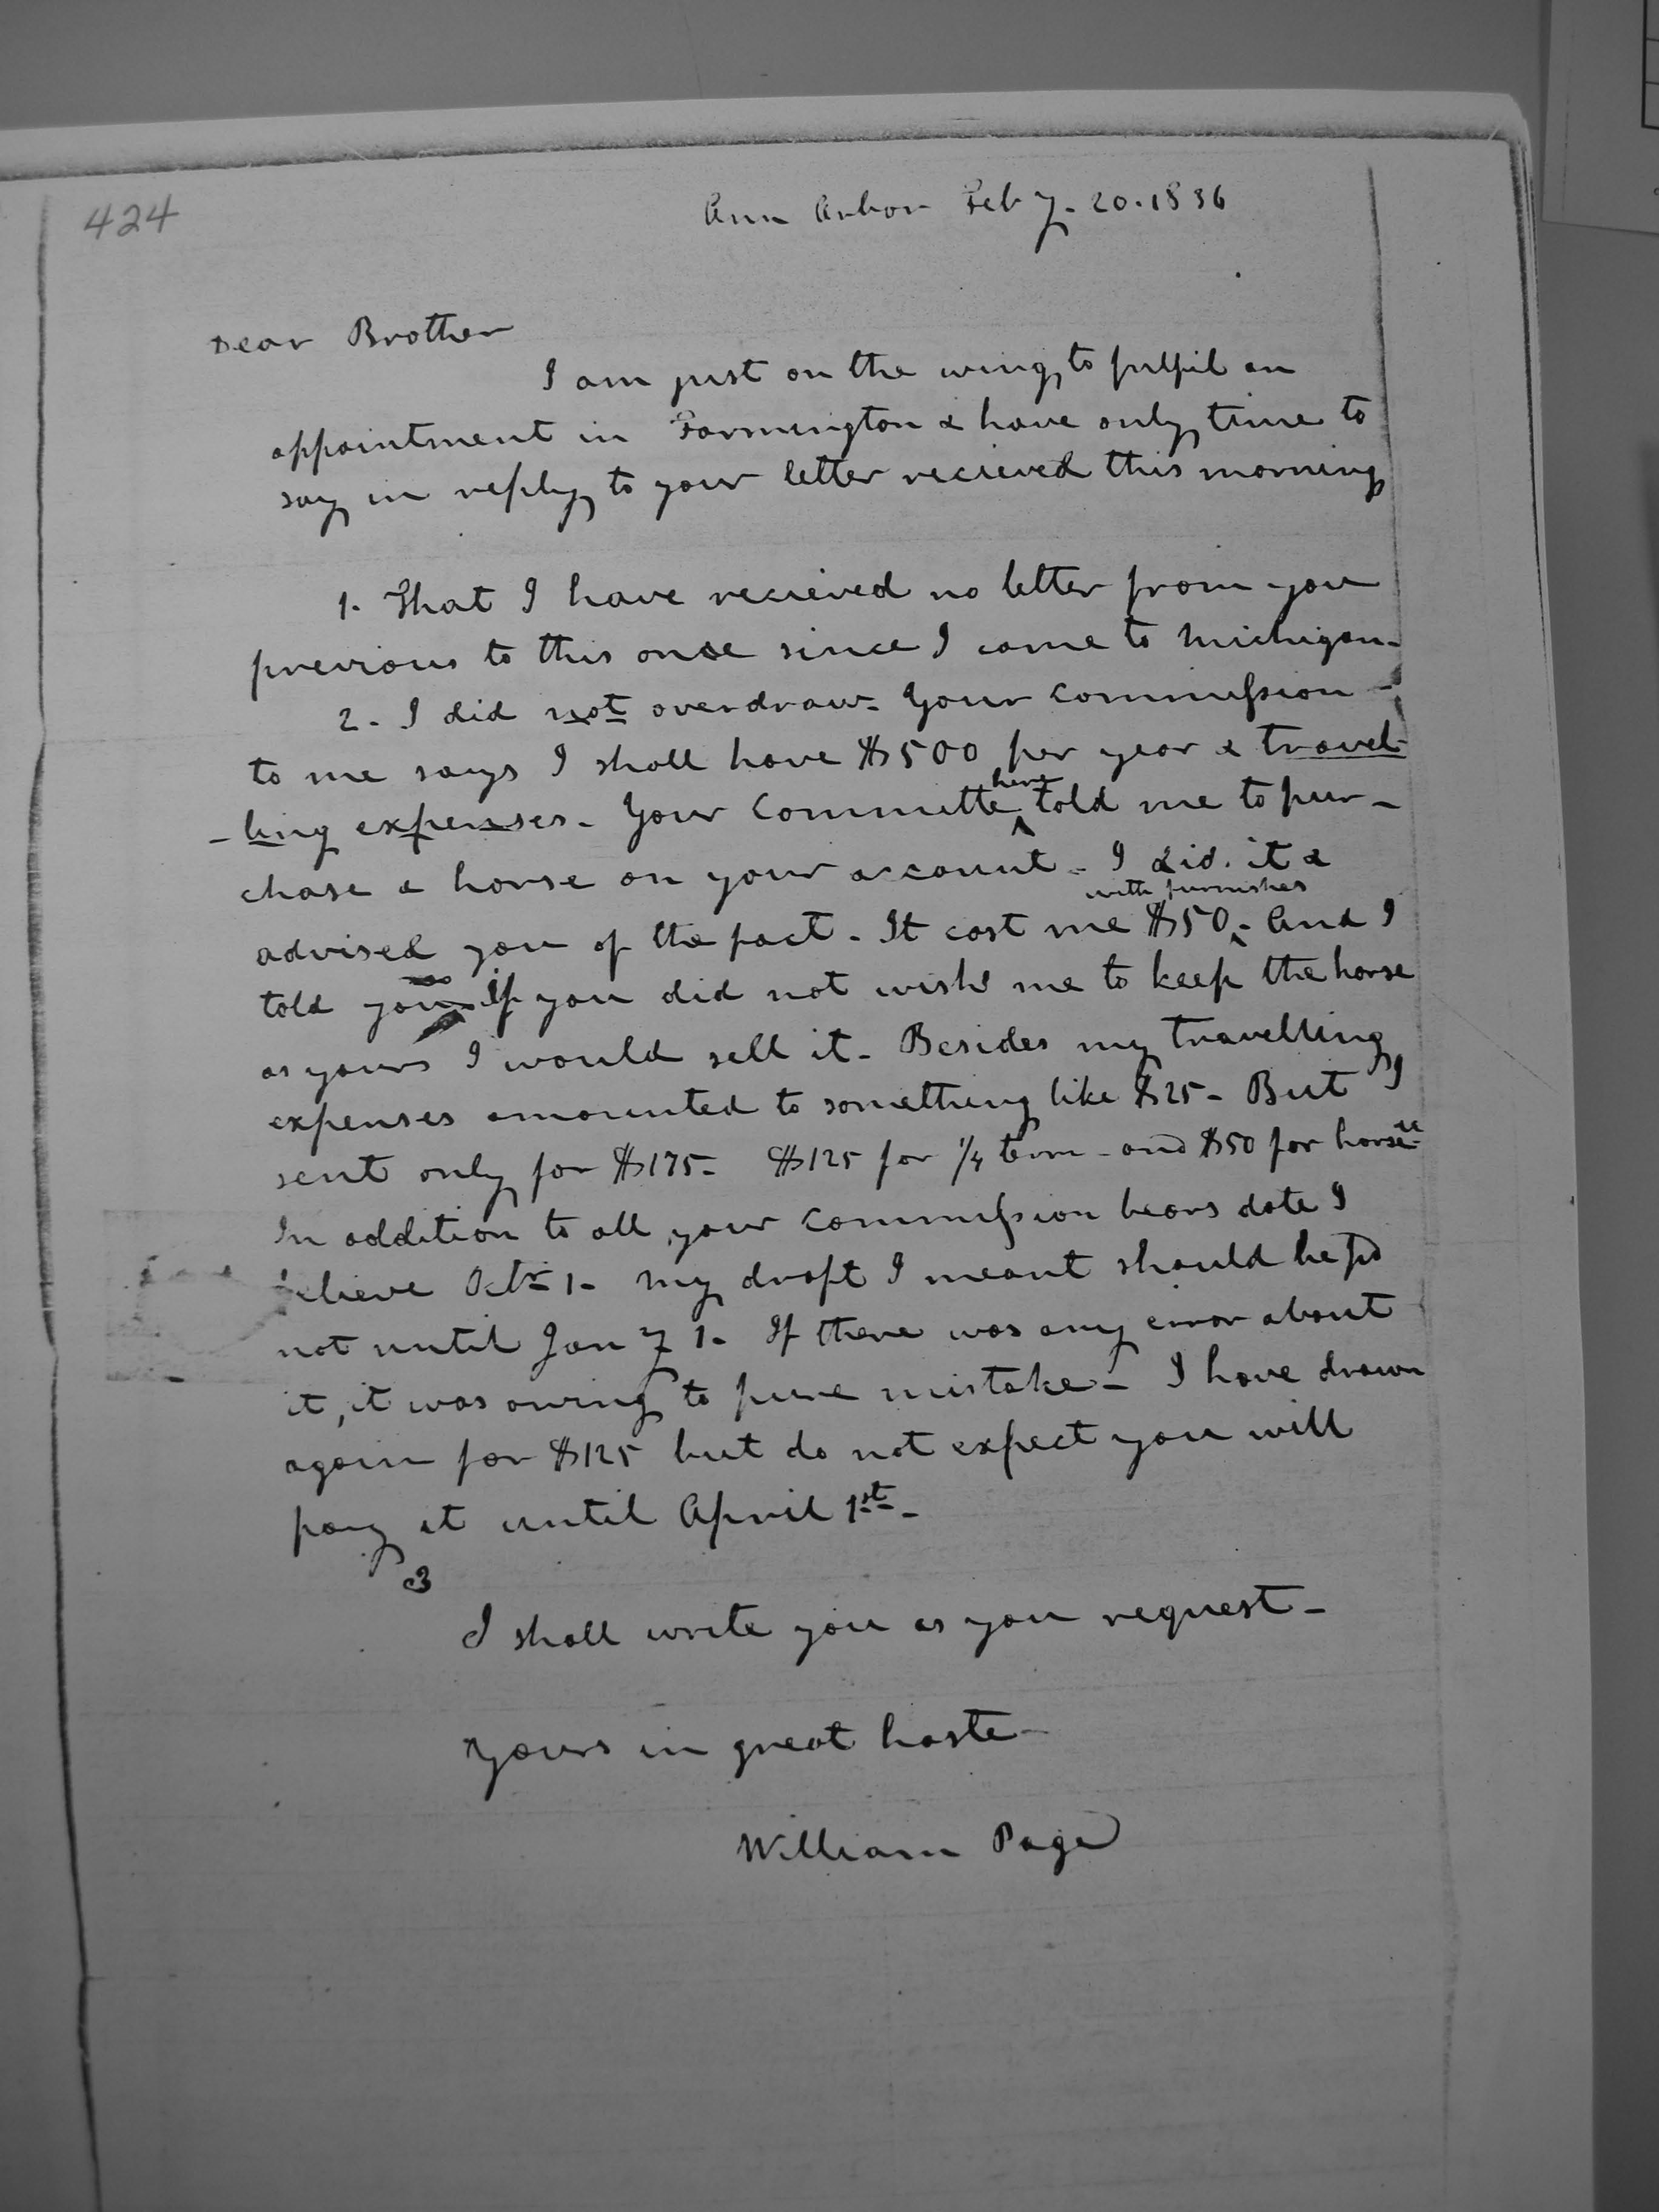 424
Ann Arbor Feb y. 20. 1836
Dear Brother
I am just on the wing, to fulfil an
appointment in Farmington & have only time to
say in reply to your letter recieved this morning
1. That I have recieved no letter from you
previous to this once since I came to Michigan.
2. I did not overdraw. Your Commission
to me says I shall have $500 per year & travel-
-ling expenses. Your Committe here told me to pur-
chase a horse on your account. I did. it &
with furnishes
advised you of the fact. It cost me $50. And I
told you if you did not wish me to keep the horse
as yours I would sell it. Besides my travelling
expenses amounted to something like $25. But I
sent only for $175. $125 for 1/4 term. and $50 for horse
In addition to all your Commission bears date I
believe Octr 1. My draft I meant should be pd
not until Jan y 1. If there was any error about
it, it was owing to pure mistake. I have drawn
again for $125 but do not expect you will
pay it until April 1st.
3
I shall write you as you request.
Yours in great haste
William Page